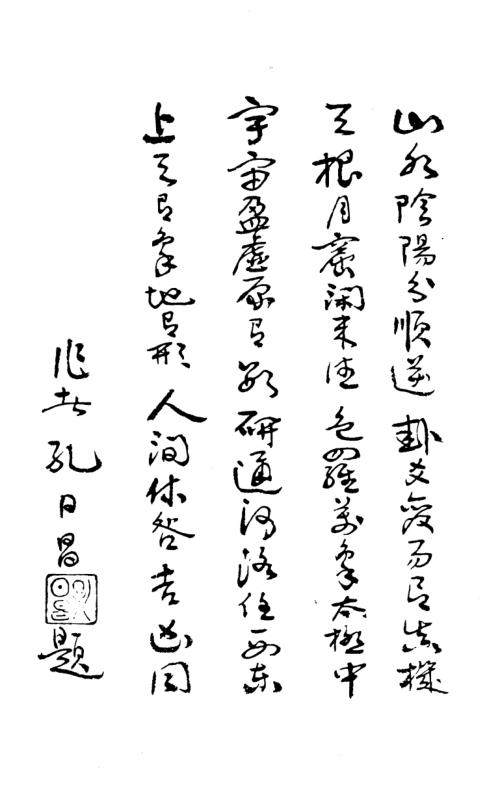 山水陰陽分順逆 卦爻變易有真機
天根月窟閒來往 包羅萬象太極中
宇宙盈虛原有數 研通河洛任西東
上天有象地有形 人間休咎吉凶同
作者 孔日昌 題